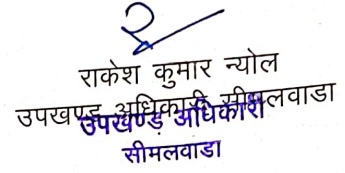 राकेश कुमार न्योल
उपखण्ड अधिकारी सीमलवाडा
उपखण्ड़ अधिकारी
सीमलवाडा